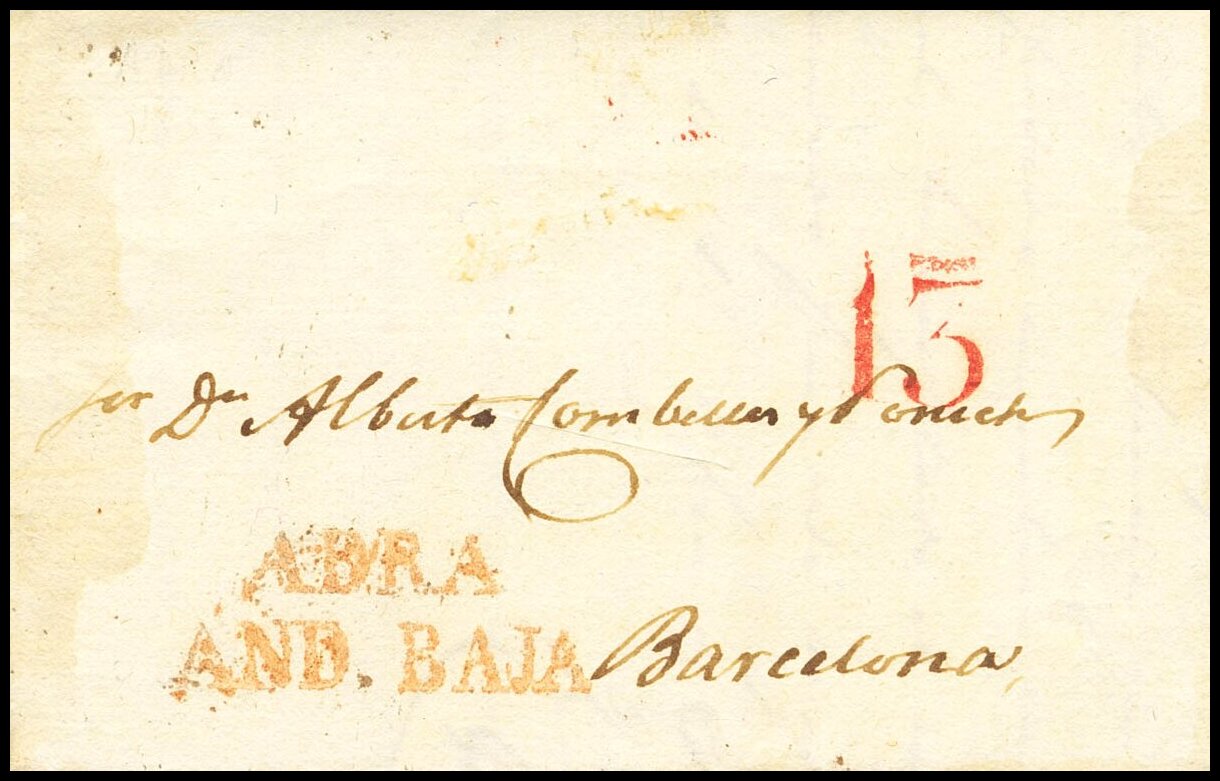 15
Dn Alberto Combelles y
ADRA
AND. BAJA
Barcelona